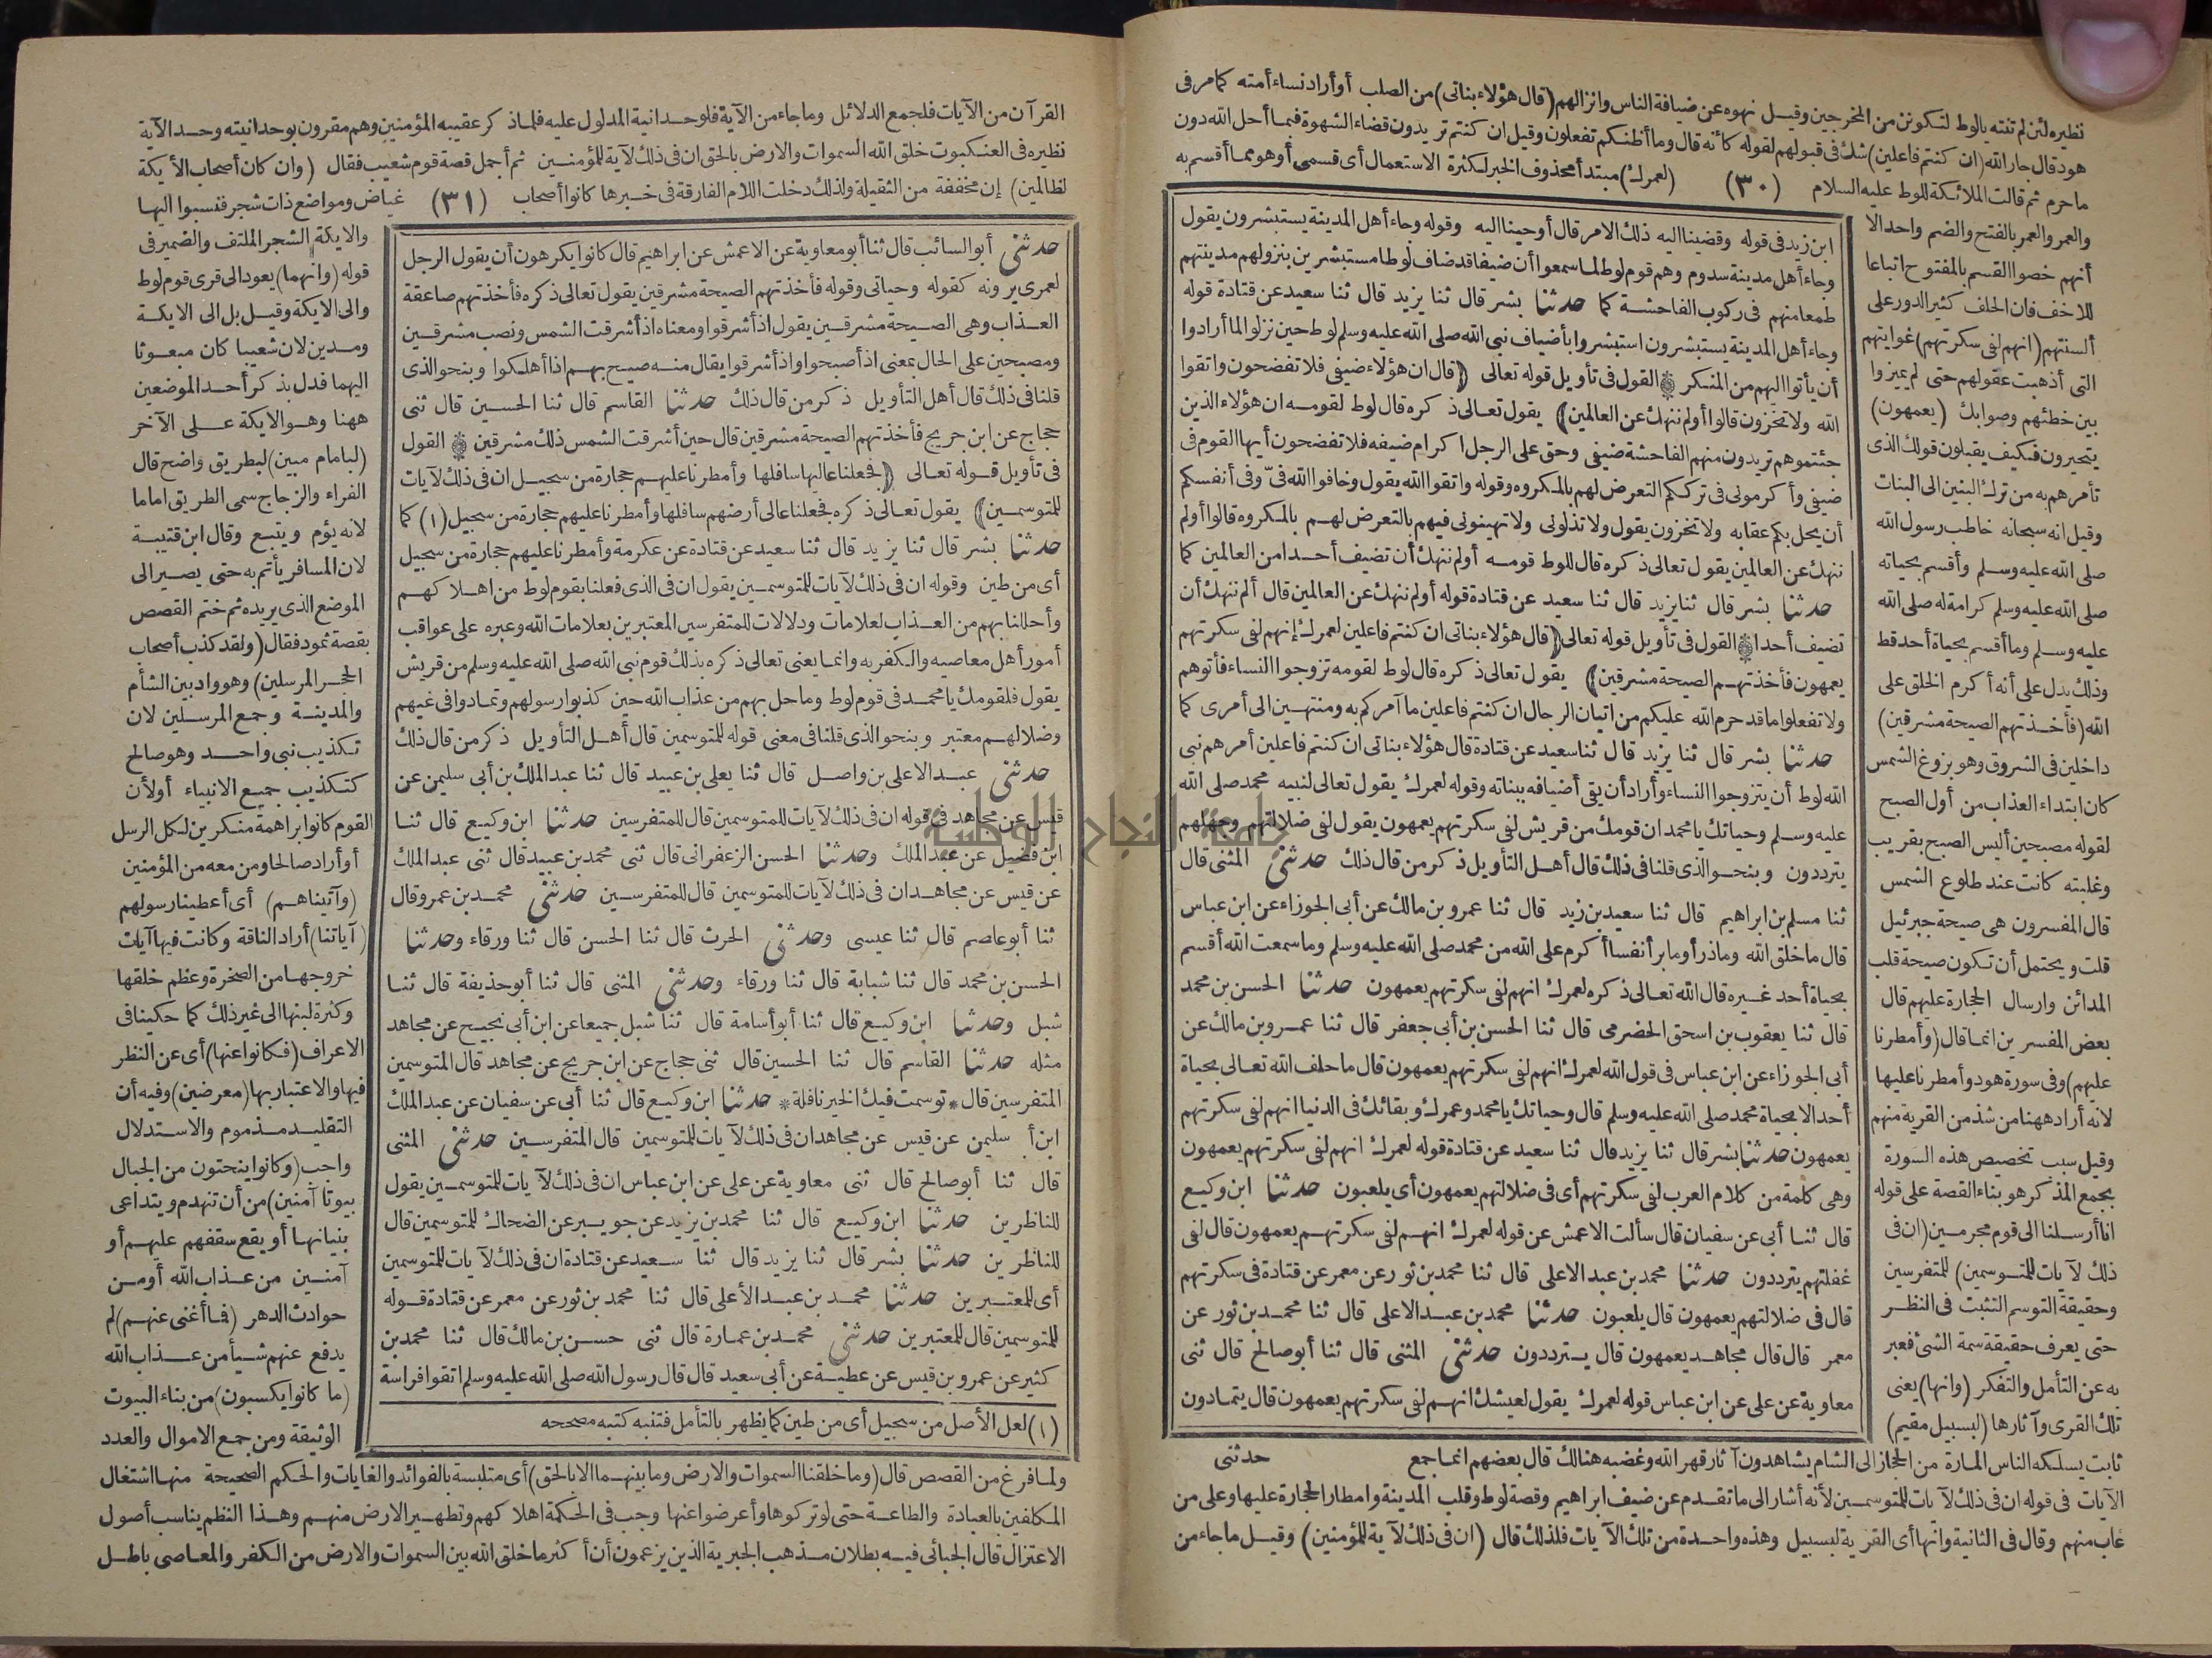 نظيره لئن لم تنته يالوط لتكونن من المخرجين وقيل نهوه عن ضيافة الناس وانزالهم (قال هؤلاء بناتى) من الصلب أو أراد نساء أمته كما مر فى
هود قال جار الله (ان كنتم فاعلين) شك فى قبولهم لقوله كأنه قال وما أظنكم تفعلون وقيل ان كنتم تريدون قضاء الشهوة فيما أحل الله دون
ما حرم ثم قالت الملائكة للوط عليه السلام (٣٠) (لعمرك) مبتدأ محذوف الخبر لكثرة الاستعمال أى قسمى أو هو مما أقسم به
والعمر والعمر بالفتح والضم واحد الا
أنهم خصوا القسم بالمفتوح اتباعا
للاخف فان الحلف كثير الدور على
ألسنتهم (انهم لفى سكرتهم) غوايتهم
التى أذهبت عقولهم حتى لم يميزوا
بين خطئهم وصوابك (يعمهون)
يتحيرون فكيف يقبلون قولك الذى
تأمرهم به من ترك البنين الى البنات
وقيل انه سبحانه خاطب رسول الله
صلى الله عليه وسلم وأقسم بحياته
صلى الله عليه وسلم كرامة له صلى الله
عليه وسلم وما أقسم بحياة أحد قط
وذلك يدل على أنه أكرم الخلق على
الله (فأخذتهم الصيحة مشرقين)
داخلين فى الشروق وهو بزوغ الشمس
كان ابتداء العذاب من أول الصبح
لقوله مصبحين أليس الصبح بقريب
وغلبته كانت عند طلوع الشمس
قال المفسرون هى صيحة جبرئيل
قلت ويحتمل أن تكون صيحة قلب
المدائن وارسال الحجارة عليهم قال
بعض المفسرين انما قال (وأمطرنا
عليهم) وفى سورة هود وأمطرنا عليها
لانه أراد ههنا من شذ من القرية منهم
وقيل سبب تخصيص هذه السورة
بجمع المذكر هو بناء القصة على قوله
انا أرسلنا الى قوم مجرمين (ان فى
ذلك لآيات للمتوسمين) للمتفرسين
وحقيقة التوسم التثبت فى النظر
حتى يعرف حقيقة سمة الشئ فعبر
به عن التأمل والتفكر (وانها) يعنى
تلك القرى وآثارها (لبسبيل مقيم)
ابن زيد فى قوله وقضينا اليه ذلك الامر قال أوحينا اليه وقوله وجاء أهل المدينة يستبشرون يقول
وجاء أهل مدينة سدوم وهم قوم لوط لما سمعوا أن ضيفا قد ضاف لوطا مستبشرين بنزولهم مدينتهم
طمعا منهم فى ركوب الفاحشة كما حدثنا بشر قال ثنا يزيد قال ثنا سعيد عن قتادة قوله
وجاء أهل المدينة يستبشرون استبشروا بأضياف نبى الله صلى الله عليه وسلم لوط حين نزلوا لما أرادوا
أن يأتوا اليهم من المنكر ۞ القول فى تأويل قوله تعالى (قال ان هؤلاء ضيفى فلا تفضحون واتقوا
الله ولا تخزون قالوا أولم ننهك عن العالمين) يقول تعالى ذكره قال لوط لقومه ان هؤلاء الذين
جئتموهم تريدون منهم الفاحشة ضيفى وحق على الرجل اكرام ضيفه فلا تفضحون أيها القوم فى
ضيفى وأكرمونى فى ترككم التعرض لهم بالمكروه وقوله واتقوا الله يقول وخافوا الله فىّ وفى أنفسكم
أن يحل بكم عقابه ولا تخزون يقول ولا تذلونى ولا تهينونى فيهم بالتعرض لهم بالمكروه قالوا أولم
ننهك عن العالمين يقول تعالى ذكره قال للوط قومه أولم ننهك أن تضيف أحدا من العالمين كما
حدثنا بشر قال ثنا يزيد قال ثنا سعيد عن قتادة قوله أولم ننهك عن العالمين قال ألم ننهك أن
تضيف أحدا ۞ القول فى تأويل قوله تعالى (قال هؤلاء بناتى ان كنتم فاعلين لعمرك إنهم لفى سكرتهم
يعمهون فأخذتهم الصيحة مشرقين) يقول تعالى ذكره قال لوط لقومه تزوجوا النساء فأتوهم
ولا تفعلوا ما قد حرم الله عليكم من اتيان الرجال ان كنتم فاعلين ما آمركم به ومنتهين الى أمرى كما
حدثنا بشر قال ثنا يزيد قال ثنا سعيد عن قتادة قال هؤلاء بناتى ان كنتم فاعلين أمرهم نبى
الله لوط أن يتزوجوا النساء وأراد أن يقى أضيافه ببناته وقوله لعمرك يقول تعالى لنبيه محمد صلى الله
عليه وسلم وحياتك يا محمد ان قومك من قريش لفى سكرتهم يعمهون يقول لفى ضلالتهم وجهلهم
يترددون وبنحو الذى قلنا فى ذلك قال أهل التأويل ذكر من قال ذلك حدثنى المثنى قال
ثنا مسلم بن ابراهيم قال ثنا سعيد بن زيد قال ثنا عمرو بن مالك عن أبى الجوزاء عن ابن عباس
قال ما خلق الله وما ذرأ وما برأ نفسا أكرم على الله من محمد صلى الله عليه وسلم وما سمعت الله أقسم
بحياة أحد غيره قال الله تعالى ذكره لعمرك انهم لفى سكرتهم يعمهون حدثنا الحسن بن محمد
قال ثنا يعقوب بن اسحق الحضرمى قال ثنا الحسن بن أبى جعفر قال ثنا عمرو بن مالك عن
أبى الجوزاء عن ابن عباس فى قول الله لعمرك انهم لفى سكرتهم يعمهون قال ما حلف الله تعالى بحياة
أحد الا بحياة محمد صلى الله عليه وسلم قال وحياتك يا محمد وعمرك وبقائك فى الدنيا انهم لفى سكرتهم
يعمهون حدثنا بشر قال ثنا يزيد قال ثنا سعيد عن قتادة قوله لعمرك انهم لفى سكرتهم يعمهون
وهى كلمة من كلام العرب لفى سكرتهم أى فى ضلالتهم يعمهون أى يلعبون حدثنا ابن وكيع
قال ثنا أبى عن سفيان قال سألت الاعمش عن قوله لعمرك انهم لفى سكرتهم يعمهون قال لفى
غفلتهم يترددون حدثنا محمد بن عبد الاعلى قال ثنا محمد بن ثور عن معمر عن قتادة فى سكرتهم
قال فى ضلالتهم يعمهون قال يلعبون حدثنا محمد بن عبد الاعلى قال ثنا محمد بن ثور عن
معمر قال قال مجاهد يعمهون قال يترددون حدثنى المثنى قال ثنا أبو صالح قال ثنى
معاوية عن على عن ابن عباس قوله لعمرك يقول لعيشك انهم لفى سكرتهم يعمهون قال يتمادون
حدثنى
ثابت يسلكه الناس المارة من الحجاز الى الشام يشاهدون آثار قهر الله وغضبه هنالك قال بعضهم انما جمع
الآيات فى قوله ان فى ذلك لآيات للمتوسمين لأنه أشار الى ما تقدم عن ضيف ابراهيم وقصة لوط وقلب المدينة وامطار الحجارة عليها وعلى من
غاب منهم وقال فى الثانية وانها أى القرية لبسبيل وهذه واحدة من تلك الآيات فلذلك قال (ان فى ذلك لآية للمؤمنين) وقيل ما جاء من
القرآن من الآيات فلجمع الدلائل وما جاء من الآية فلوحدانية المدلول عليه فلما ذكر عقيبه المؤمنين وهم مقرون بوحدانيته وحد الآية
نظيره فى العنكبوت خلق الله السموات والارض بالحق ان فى ذلك لآية للمؤمنين ثم أجمل قصة قوم شعيب فقال (وان كان أصحاب الأيكة
لظالمين) إن مخففة من الثقيلة ولذلك دخلت اللام الفارقة فى خبرها كانوا أصحاب (٣١) غياض ومواضع ذات شجر فنسبوا اليها
حدثنى أبو السائب قال ثنا أبو معاوية عن الاعمش عن ابراهيم قال كانوا يكرهون أن يقول الرجل
لعمرى يرونه كقوله وحياتى وقوله فأخذتهم الصيحة مشرقين يقول تعالى ذكره فأخذتهم صاعقة
العذاب وهى الصيحة مشرقين يقول اذ أشرقوا ومعناه اذ أشرقت الشمس ونصب مشرقين
ومصبحين على الحال بمعنى اذ أصبحوا واذ أشرقوا يقال منه صيح بهم اذا أهلكوا وبنحو الذى
قلنا فى ذلك قال أهل التأويل ذكر من قال ذلك حدثنا القاسم قال ثنا الحسين قال ثنى
حجاج عن ابن جريج فأخذتهم الصيحة مشرقين قال حين أشرقت الشمس ذلك مشرقين ۞ القول
فى تأويل قوله تعالى (فجعلنا عاليها سافلها وأمطرنا عليهم حجارة من سجيل ان فى ذلك لآيات
للمتوسمين) يقول تعالى ذكره فجعلنا عالى أرضهم سافلها وأمطرنا عليهم حجارة من سجيل (١) كما
حدثنا بشر قال ثنا يزيد قال ثنا سعيد عن قتادة عن عكرمة وأمطرنا عليهم حجارة من سجيل
أى من طين وقوله ان فى ذلك لآيات للمتوسمين يقول ان فى الذى فعلنا بقوم لوط من اهلاكهم
وأحللنا بهم من العذاب لعلامات ودلالات للمتفرسين المعتبرين بعلامات الله وعبره على عواقب
أمور أهل معاصيه والكفر به وانما يعنى تعالى ذكره بذلك قوم نبى الله صلى الله عليه وسلم من قريش
يقول فلقومك يا محمد فى قوم لوط وما حل بهم من عذاب الله حين كذبوا رسولهم وتمادوا فى غيهم
وضلالهم معتبر وبنحو الذى قلنا فى معنى قوله للمتوسمين قال أهل التأويل ذكر من قال ذلك
حدثنى عبد الاعلى بن واصل قال ثنا يعلى بن عبيد قال ثنا عبد الملك بن أبى سليمن عن
قيس عن مجاهد فى قوله ان فى ذلك لآيات للمتوسمين قال للمتفرسين حدثنا ابن وكيع قال ثنا
ابن فضيل عن عبد الملك وحدثنا الحسن الزعفرانى قال ثنى محمد بن عبيد قال ثنى عبد الملك
عن قيس عن مجاهد ان فى ذلك لآيات للمتوسمين قال للمتفرسين حدثنى محمد بن عمرو قال
ثنا أبو عاصم قال ثنا عيسى وحدثنى الحرث قال ثنا الحسن قال ثنا ورقاء وحدثنا
الحسن بن محمد قال ثنا شبابة قال ثنا ورقاء وحدثنى المثنى قال ثنا أبو حذيفة قال ثنا
شبل وحدثنا ابن وكيع قال ثنا أبو أسامة قال ثنا شبل جميعا عن ابن أبى نجيح عن مجاهد
مثله حدثنا القاسم قال ثنا الحسين قال ثنى حجاج عن ابن جريج عن مجاهد قال المتوسمين
المتفرسين قال * توسمت فيك الخير نافلة * حدثنا ابن وكيع قال ثنا أبى عن سفيان عن عبد الملك
ابن أ سليمن عن قيس عن مجاهد ان فى ذلك لآيات للمتوسمين قال المتفرسين حدثنى المثنى
قال ثنا أبو صالح قال ثنى معاوية عن على عن ابن عباس ان فى ذلك لآيات للمتوسمين يقول
للناظرين حدثنا ابن وكيع قال ثنا محمد بن يزيد عن جويبر عن الضحاك للمتوسمين قال
للناظرين حدثنا بشر قال ثنا يزيد قال ثنا سعيد عن قتادة ان فى ذلك لآيات للمتوسمين
أى للمعتبرين حدثنا محمد بن عبد الأعلى قال ثنا محمد بن ثور عن معمر عن قتادة قوله
للمتوسمين قال للمعتبرين حدثنى محمد بن عمارة قال ثنى حسن بن مالك قال ثنا محمد بن
كثير عن عمرو بن قيس عن عطية عن أبى سعيد قال قال رسول الله صلى الله عليه وسلم اتقوا فراسة
(١) لعل الأصل من سجيل أى من طين كما يظهر بالتأمل فتنبه كتبه مصححه
والايكة الشجر الملتف والضمير فى
قوله (وانهما) يعود الى قرى قوم لوط
والى الايكة وقيل بل الى الايكة
ومدين لان شعيبا كان مبعوثا
اليهما فدل بذكر أحد الموضعين
ههنا وهو الايكة على الآخر
(لبامام مبين) لبطريق واضح قال
الفراء والزجاج سمى الطريق اماما
لانه يؤم ويتبع وقال ابن قتيبة
لان المسافر يأتم به حتى يصير الى
الموضع الذى يريده ثم ختم القصص
بقصة ثمود فقال (ولقد كذب أصحاب
الحجر المرسلين) وهو واد بين الشأم
والمدينة وجمع المرسلين لان
تكذيب نبى واحد وهو صالح
كتكذيب جميع الانبياء أو لأن
القوم كانوا براهمة منكرين لكل الرسل
أو أراد صالحا ومن معه من المؤمنين
(وآتيناهم) أى أعطينا رسولهم
(آياتنا) أراد الناقة وكانت فيها آيات
خروجها من الصخرة وعظم خلقها
وكثرة لبنها الى غير ذلك كما حكينا فى
الاعراف (فكانوا عنها) أى عن النظر
فيها والاعتبار بها (معرضين) وفيه أن
التقليد مذموم والاستدلال
واجب (وكانوا ينحتون من الجبال
بيوتا آمنين) من أن تنهدم ويتداعى
بنيانها أو يقع سقفهم عليهم أو
آمنين من عذاب الله أو من
حوادث الدهر (فما أغنى عنهم) لم
يدفع عنهم شيأ من عذاب الله
(ما كانوا يكسبون) من بناء البيوت
الوثيقة ومن جمع الاموال والعدد
ولما فرغ من القصص قال (وما خلقنا السموات والارض وما بينهما الا بالحق) أى متلبسة بالفوائد والغايات والحكم الصحيحة منها اشتغال
المكلفين بالعبادة والطاعة حتى لو تركوها وأعرضوا عنها وجب فى الحكمة اهلاكهم وتطهير الارض منهم وهذا النظم يناسب أصول
الاعتزال قال الجبائى فيه بطلان مذهب الجبرية الذين يزعمون أن أكثر ما خلق الله بين السموات والارض من الكفر والمعاصى باطل
جامعة النجاح الوطنية